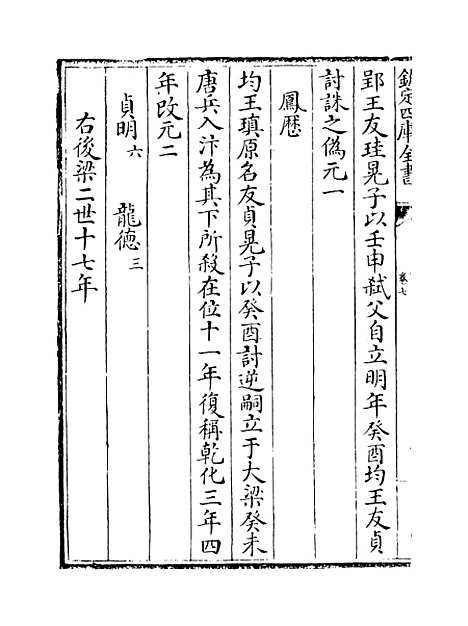 欽定四庫全書
卷七
郢王友珪晃子以壬申弑父自立明年癸酉均王友貞
討誅之偽元一
鳳歷
均王瑱原名友貞晃子以癸酉討逆嗣立于大梁癸未
唐兵入汴為其下所殺在位十一年復稱乾化三年四
年改元二
貞明六 龍德三
右後梁二世十七年